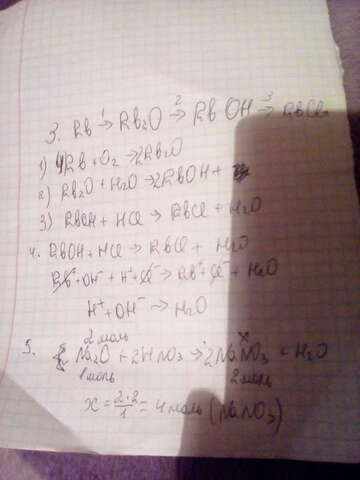 3. Rb →¹ Rb₂O →² RbOH →³ RbCl
1) 4Rb + O₂ → 2Rb₂O
2) Rb₂O + H₂O → 2RbOH +
3) RbOH + HCl → RbCl + H₂O
4. RbOH + HCl → RbCl + H₂O
Rb⁺ + OH⁻ + H⁺ + Cl⁻ → Rb⁺ + Cl⁻ + H₂O
H⁺ + OH⁻ → H₂O
2 моль x
5. Na₂O + 2HNO₃ → 2NaNO₃ + H₂O
1 моль 2 моль
x = 2·2/1 = 4 моль (NaNO₃)